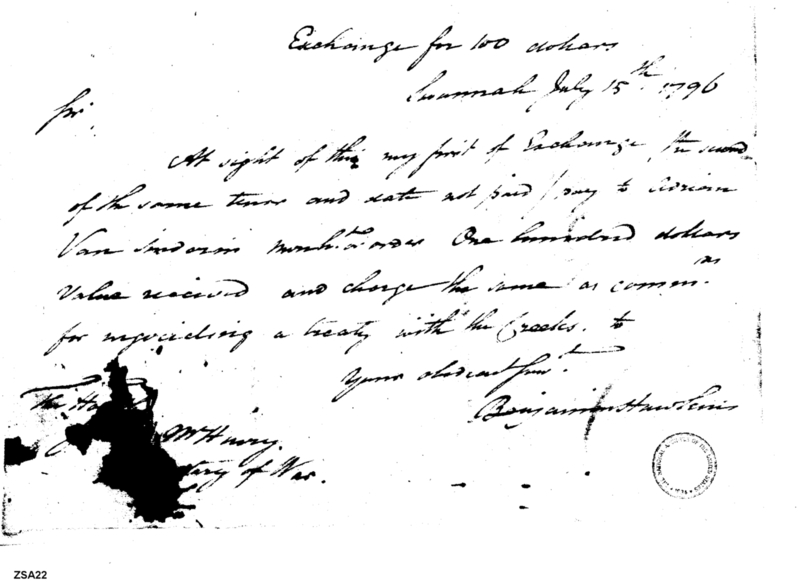 Exchange for 100 dollars
Savannah July 15th 1796
Sir.
At sight of this my first of Exchange, the second
of the same tenor and date not paid, pay to Adrian
Van Sinderin merch.t or order One hundred dollars
Value received and charge the same as comm.rs
for negociating a treaty with the Creeks. to
Your obedient Serv.t
Benjamin Hawkins
The Ho
McHenry.
tary of War.
ZSA22